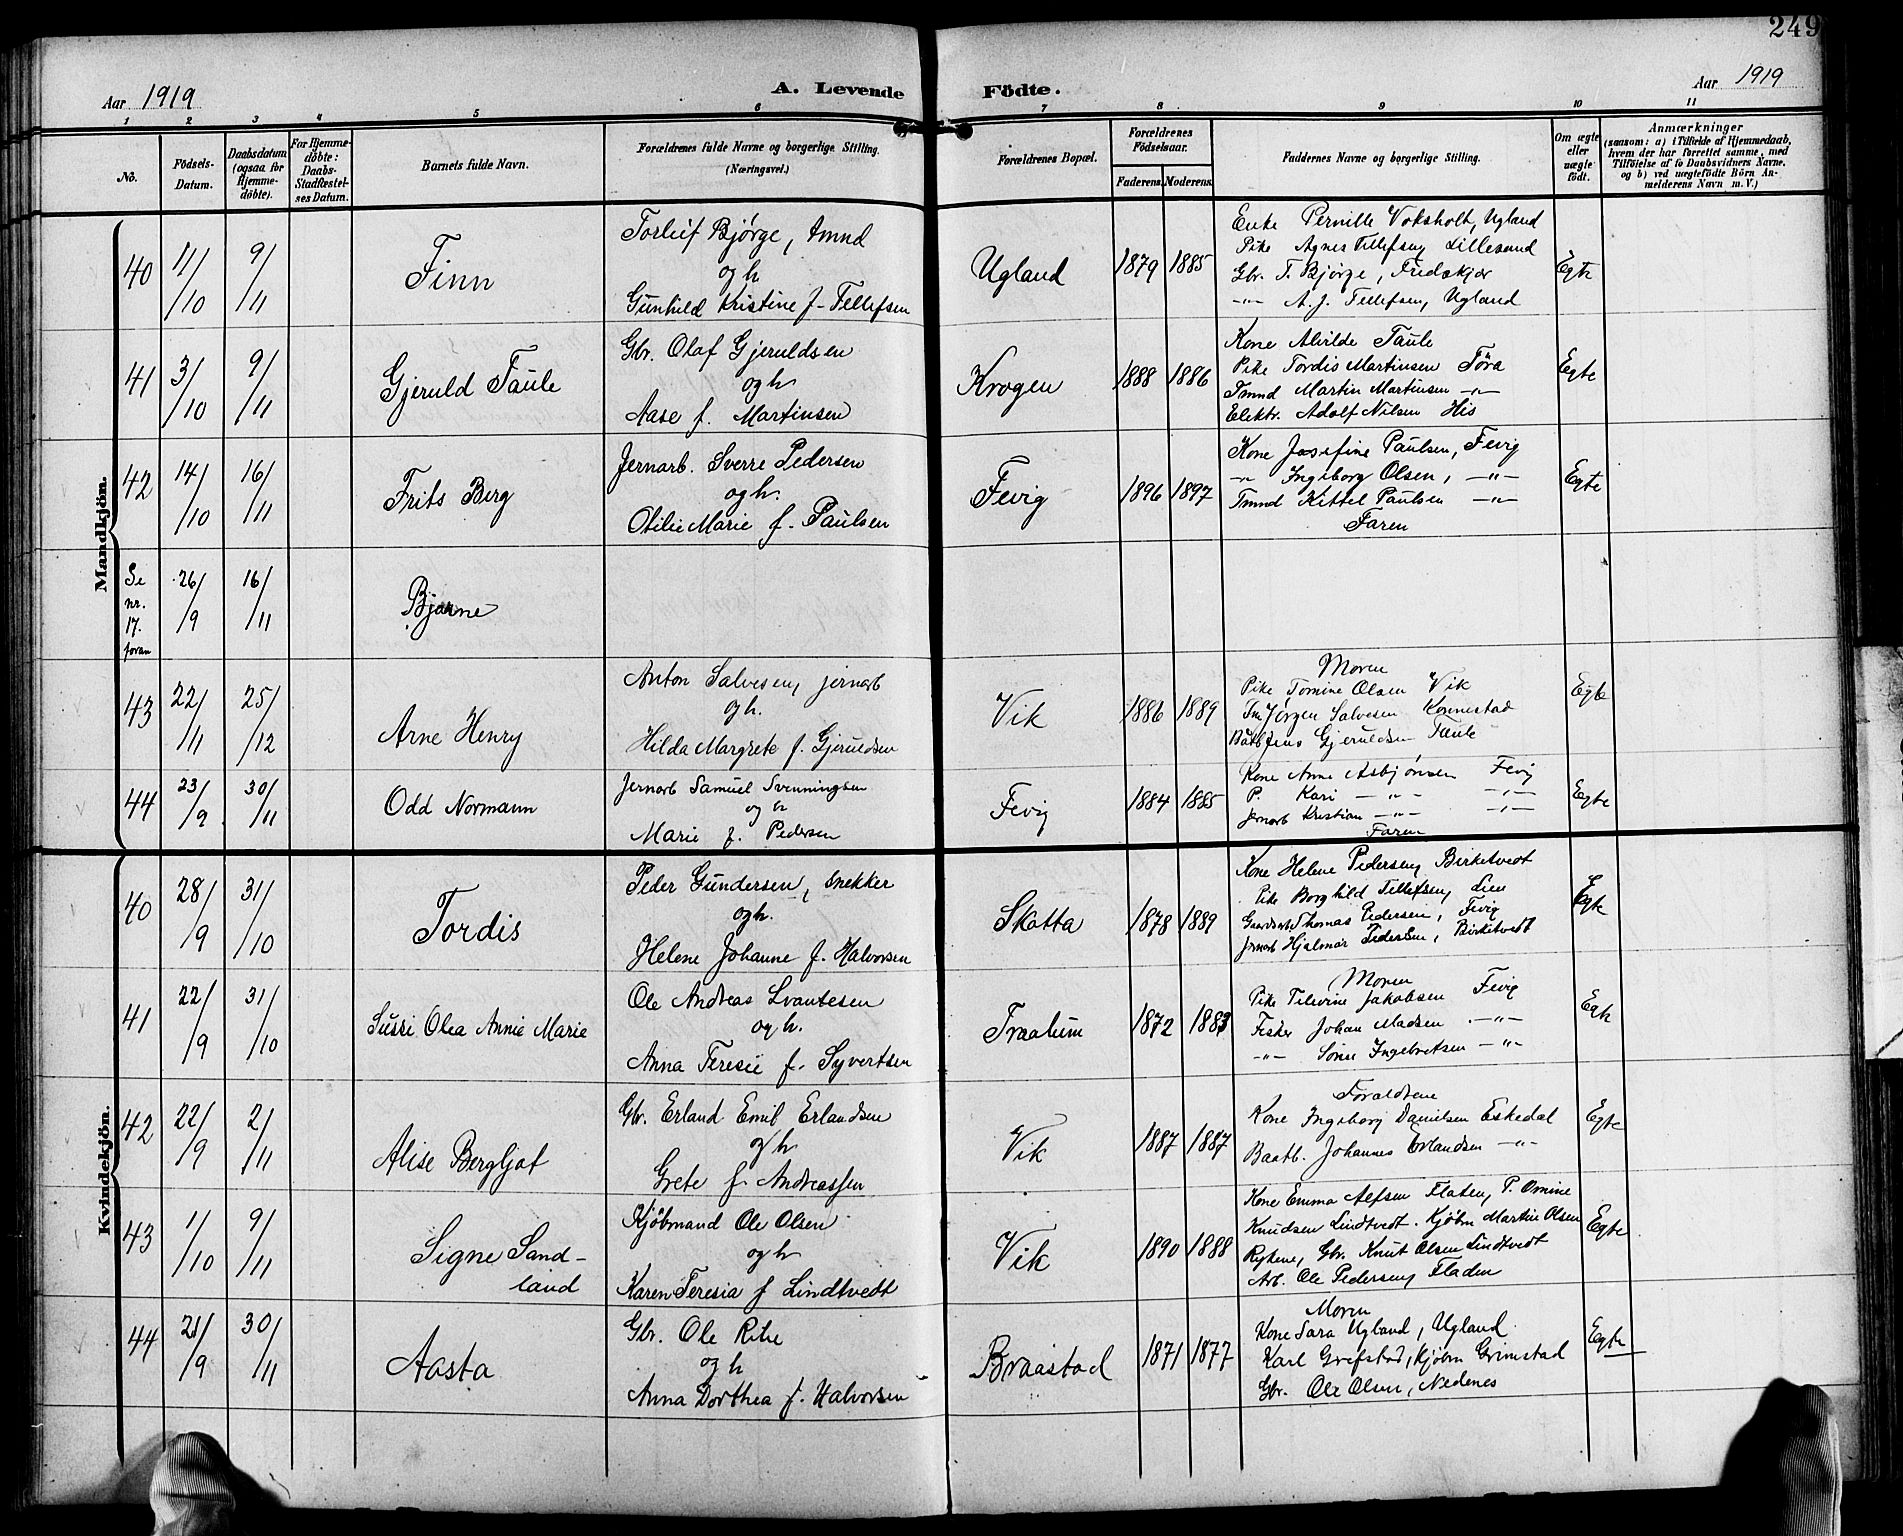 249
Aar 1919
A. Levende Födte.
Aar 1919
1 2 3 4 5 6 7 8 9 10 11
No.
Födsels-Datum.
Daabsdatum (ogsaa for Hjemmedöbte).
For Hjemmedöbte: Daabs-Stadfæstelses Datum.
Barnets fulde Navn.
Forældrenes fulde Navne og borgerlige Stilling. (Næringsvei.)
Forældrenes Bopæl.
Forældrenes Födselsaar.
Faderens. Moderens.
Faddernes Navne og borgerlige Stilling.
Om ægte eller uægte födt.
Anmærkninger (saasom: a) i Tilfælde af Hjemmedaab, hvem der har forrettet samme, med Tilföielse af to Daabsvidners Navne, og b) ved uægtefödte Börn Anmelderens Navn m. V.)
Mandkjön.
40 11/10 9/11 Finn
Torleif Bjørge, tmnd
og h
Gunhild Kristine f. Tellefsen
Ugland 1879 1885
Enke Pernille Voksholt, Ugland
Pike Agnes Tellefsen Lillesand
Gbr. T. Bjørge, Fredskjær
-"- A. J. Tellefsen, Ugland
Egte
41 3/10 9/11 Gjeruld Taule
Gbr. Olaf Gjeruldsen
og h
Aase f. Martinsen
Krogen 1888 1886
Kone Alvilde Taule
Pike Tordis Martinsen Föra
Tmnd Martin Martinsen -"-
Elektr. Adolf Nilsen His
Egte
42 14/10 16/11 Frits Berg
Jernarb. Sverre Pedersen
og h.
Otilie Marie f. Paulsen
Fevig 1896 1897
Kone Josefine Paulsen, Fevig
-"- Ingeborg Olsen, -"-
Tmnd Kittel Paulsen -"-
Faren
Egte
Se nr. 17. foran 26/9 16/11 Bjarne
43 22/11 25/12 Arne Henry
Anton Salvesen, jernarb
og h.
Hilda Margrete f. Gjeruldsen
Vik 1886 1889
Moren
Pike Tomine Olsen Vik
Tm Jørgen Salvesen Konnestad
Baatb Jens Gjeruldsen Taule
Egte
44 23/9 30/11 Odd Normann
Jernarb Samuel Svenningsen
og h
Marie f. Pedersen
Fevig 1884 1885
Kone Anne Asbjönsen Fevig
P. Kari -"- -"-
Jernarb Kristian -"- -"-
Faren
Egte
Kvindekjön.
40 28/9 31/10 Tordis
Peder Gundersen, snekker
og h.
Helene Johanne f. Halvorsen
Skatta 1878 1889
Kone Helene Pedersen, Birketvedt
Pike Borghild Tellefsen, Lien
Thomas Pedersen, Fevig
Jernarb Hjalmar Pedersen, Birketvedt
Egte
41 22/9 31/10 Sussi Olea Annie Marie
Ole Andreas Svantesen
og h.
Anna Teresie f. Syvertsen
Traalum 1872 1883
Moren
Pike Tilevine Jakobsen Fevig
Fisker Johan Madsen -"-
-"- Sören Ingebretsen -"-
Egte
42 22/9 2/11 Alise Bergljot
Gbr. Erland Emil Erlandsen
og h
Grete f Andreassen
Vik 1887 1887
Foraldrene
Kone Ingeborg Danielsen Eskedal
Baatb. Johannes Erlandsen -"-
Egte
43 1/10 9/11 Signe Sand-
land
Kjöbmand Ole Olsen
og h
Karen Teresia f Lindtvedt
Vik 1890 1888
Kone Emma Alfsen Flaten, P. Omine
Knudsen Lindtvedt. Kjöbm Martin Olsen
Rykene, Gbr. Knut Olsen Lindtvedt
Arb. Ole Pedersen, Fladen
Egte
44 21/9 30/11 Aasta
Gbr. Ole Ribe
og h
Anna Dorthea f. Halvorsen
Braastad 1871 1877
Moren
Kone Sara Ugland, Ugland.
Karl Grefstad, Kjöbm Grimstad
Gbr. Ole Olsen, Nedenes
Egte